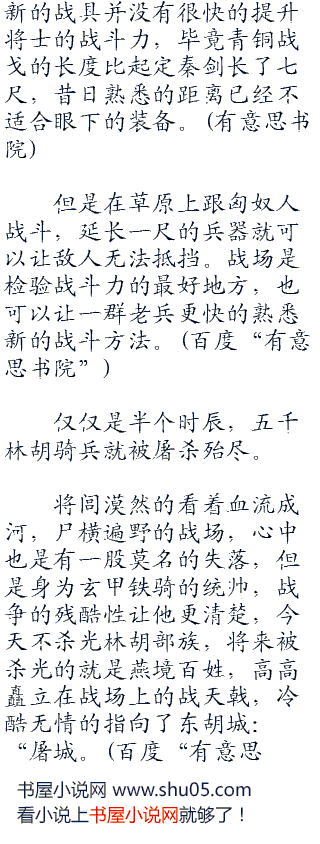 新的战具并没有很快的提升
将士的战斗力，毕竟青铜战
戈的长度比起定秦剑长了七
尺，昔日熟悉的距离已经不
适合眼下的装备。(有意思书
院)
但是在草原上跟匈奴人
战斗，延长一尺的兵器就可
以让敌人无法抵挡。战场是
检验战斗力的最好地方，也
可以让一群老兵更快的熟悉
新的战斗方法。(百度“有意
思书院”)
仅仅是半个时辰，五千
林胡骑兵就被屠杀殆尽。
将闾漠然的看着血流成
河，尸横遍野的战场，心中
也是有一股莫名的失落，但
是身为玄甲铁骑的统帅，战
争的残酷性让他更清楚，今
天不杀光林胡部族，将来被
杀光的就是燕境百姓，高高
矗立在战场上的战天戟，冷
酷无情的指向了东胡城：
“屠城。(百度“有意思
书屋小说网 www.shu05.com
看小说上书屋小说网就够了！